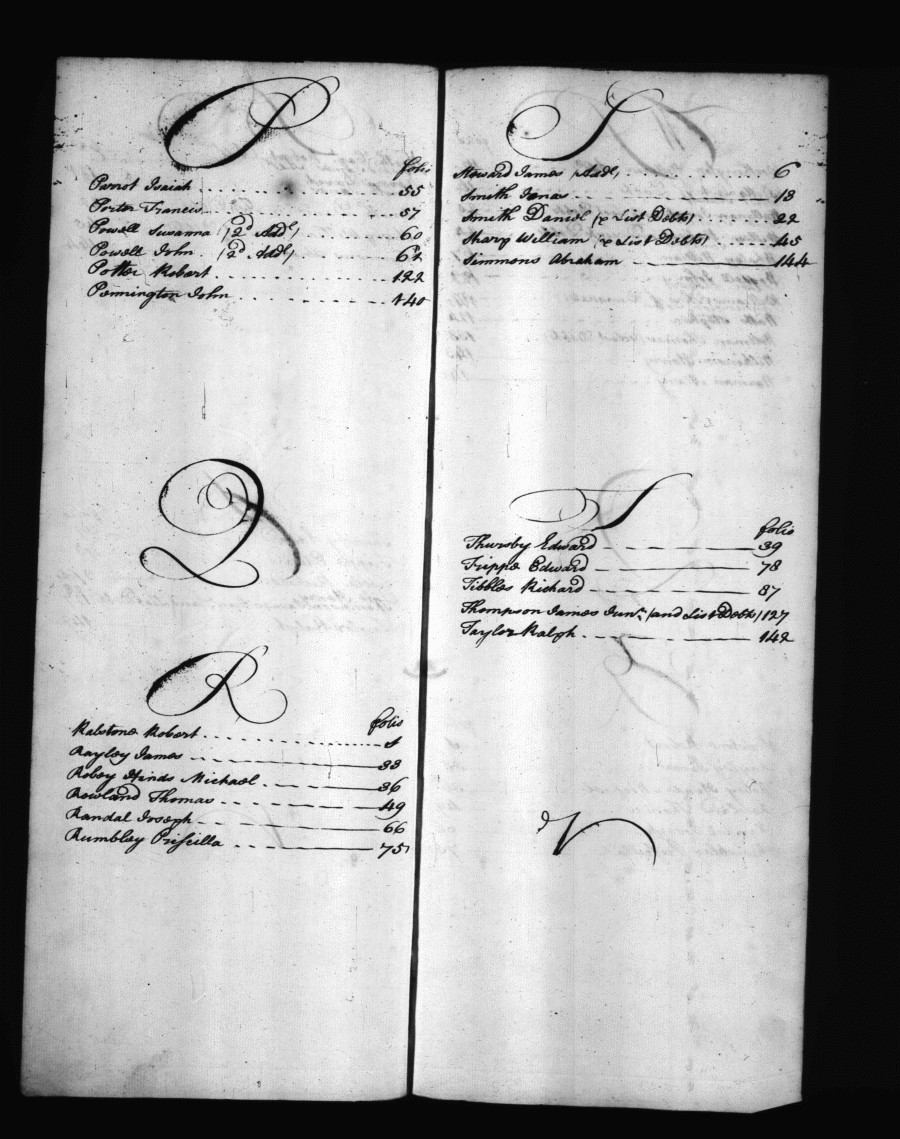 P
folio
Parrot Isaiah . . . . . . . . . 55
Porter Francis . . . . . . . . 57
Powell Susanna (2d Addl) . . . . . 60
Powell John . (2d Addl) . . . . . 62
Potter Robert . . . . . . . . 122
Pennington John . . . . . . . 140
Q
R
folio
Ralstone Robert . . . . . . . 1
Rayley James 33
Robey Hinds Michael 36
Rowland Thomas 49
Randal Joseph 66
Rumbley Priscilla 75
S
Steward James (Addl) . . . . . 6
Smith Jonas 13
Smith Daniel (& List Debts) 22
Sharp William (& List Debts) 45
Simmons Abraham 144
T
folio
Thursby Edward 39
Trippe Edward 78
Tibbles Richard 87
Thompson James Junr (and List Debts) 127
Taylor Ralph 142
V